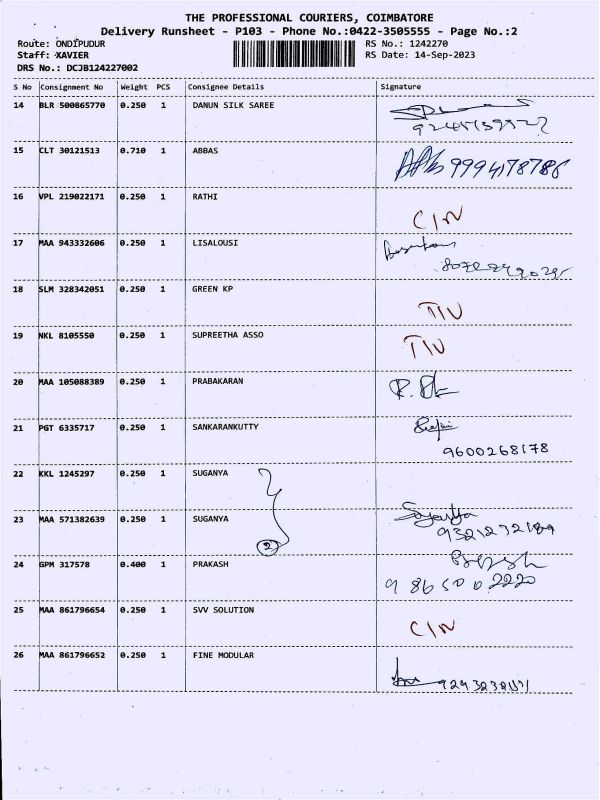 THE PROFESSIONAL COURIERS, COIMBATORE
Delivery Runsheet - P103 - Phone No.:0422-3505555 - Page No.:2
Route: ONDIPUDUR RS No.: 1242270
Staff: XAVIER RS Date: 14-Sep-2023
DRS No.: DCJB124227002
S No Consignment No Weight PCS Consignee Details Signature
14 BLR 500865770 0.250 1 DANUN SILK SAREE
15 CLT 30121513 0.710 1 ABBAS 9994178786
16 VPL 219022171 0.250 1 RATHI C/N
17 MAA 943332606 0.250 1 LISALOUSI
18 SLM 328342051 0.250 1 GREEN KP
19 NKL 8105550 0.250 1 SUPREETHA ASSO
20 MAA 105088389 0.250 1 PRABAKARAN
21 PGT 6335717 0.250 1 SANKARANKUTTY
9600268178
22 KKL 1245297 0.250 1 SUGANYA
23 MAA 571382639 0.250 1 SUGANYA
2
24 GPM 317578 0.400 1 PRAKASH
9865002220
25 MAA 861796654 0.250 1 SVV SOLUTION C/N
26 MAA 861796652 0.250 1 FINE MODULAR